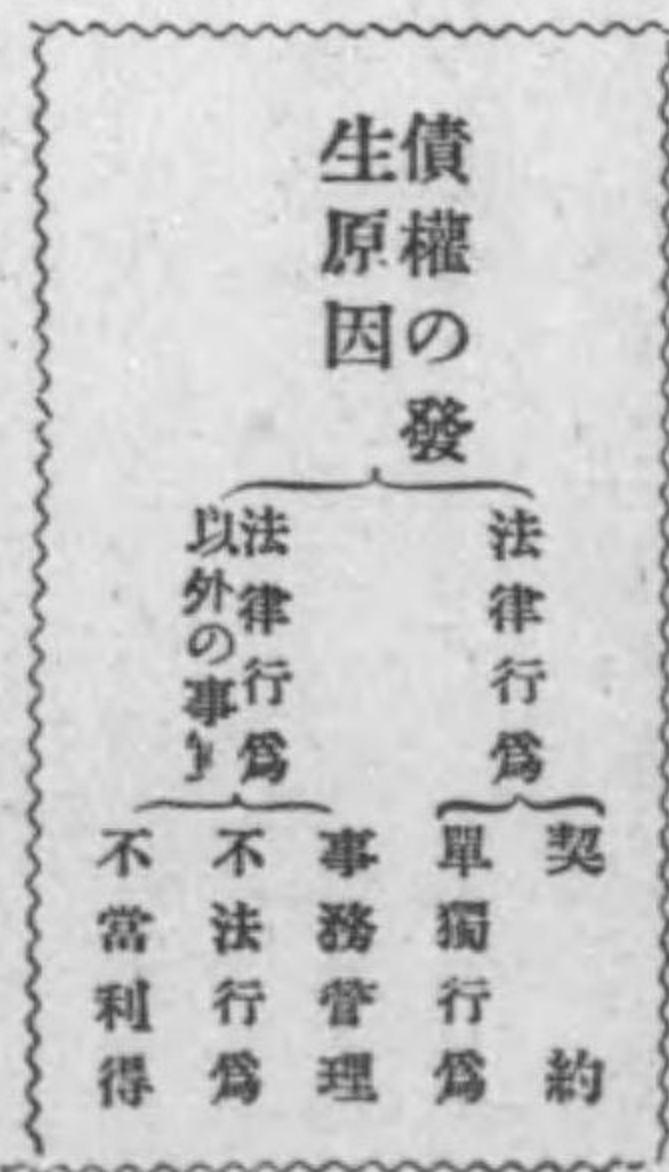 債權の發
生原因
法律行爲
契約
單獨行爲
法律行爲
以外の事
事務管理
不法行爲
不當利得